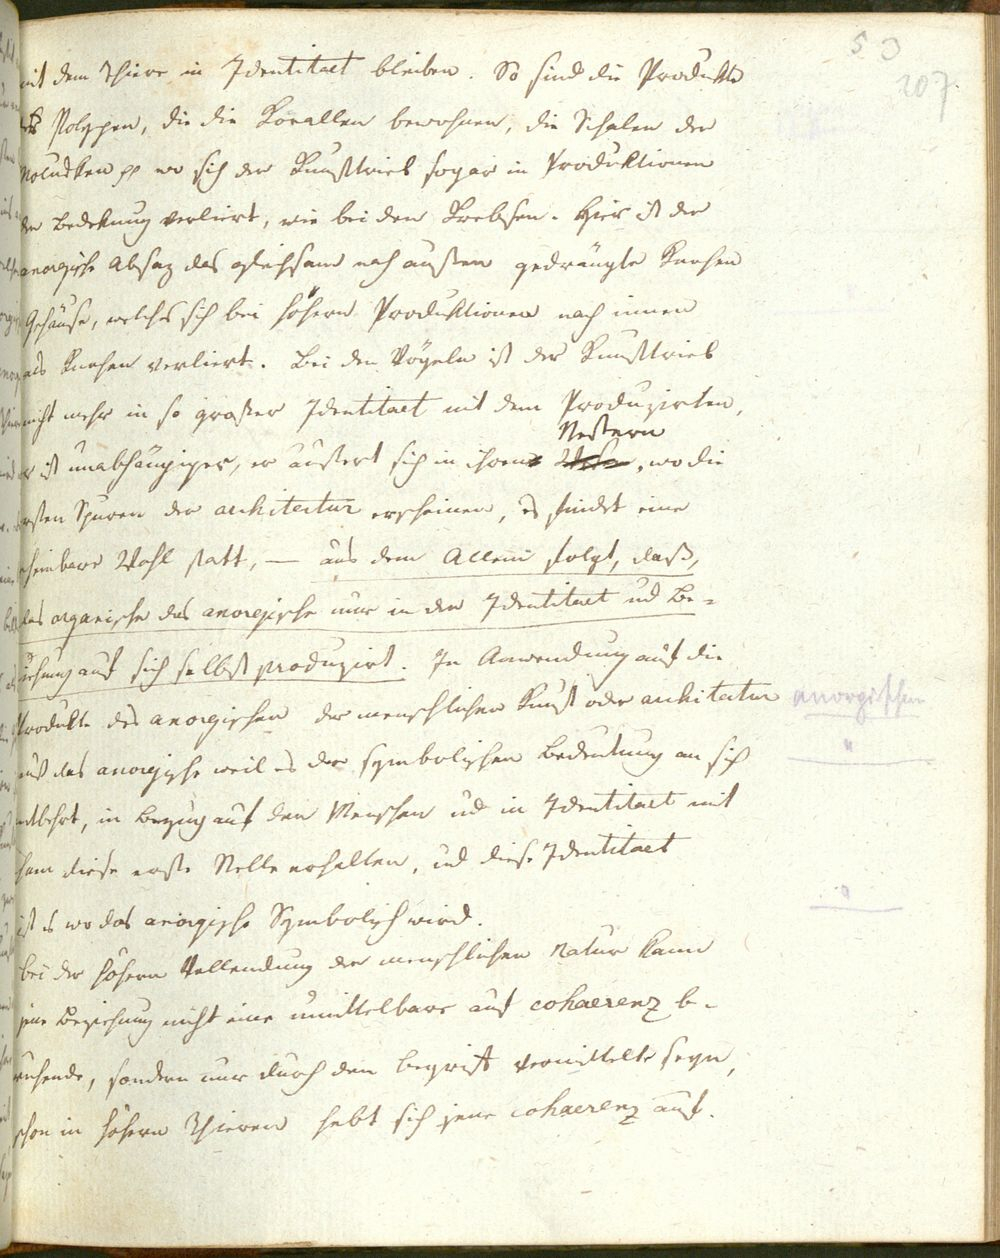 53
207.
mit dem Thiere in Identitaet bleiben. So sind die Produkte
der Polypen, die die Korallen bewohnen, die Schalen der
Molusken pp wo sich der Kunsttrieb sogar in Produktionen
der Bedekung verliert, wie bei den Krebsen. Hier ist der
anorgische Absaz das gleichsam nach aussen gedrängte Knochen
Gehäuse, welches sich bei höhern Produktionen nach innen
als Knochen verliert. Bei den Vögeln ist der Kunsttrieb
nicht mehr in so grosser Identitaet mit dem Produzirten,
Nestern
er ist unabhängiger, er äussert sich in ihren , wo die
ersten Spuren der architectur erscheinen, es findet eine
scheinbare Wahl statt, — aus dem Allem folgt, dass,
das organische das anorgische nur in der Identitaet ud Be=
ziehung auf sich selbst produzirt. In Anwendung auf die
Produkte des anorgischen der menschlichen Kunst oder architectur anorgischen
muß das anorgische weil es der symbolischen Bedeutung an sich "
entbehrt, in Bezug auf den Menschen ud in Identitaet mit
ihm diese erste Stelle erhalten, ud diese Identitaet
ist es wo das anorgische Symbolisch wird. "
bei der höhern Vollendung der menschlichen Natur kann
jene Beziehung nicht eine unmittelbare auf cohaerenz b-
ruhende, sondern nur durch den begriff vermittelte seyn,
schon in höhern Thieren hebt sich jene cohaerenz auf.